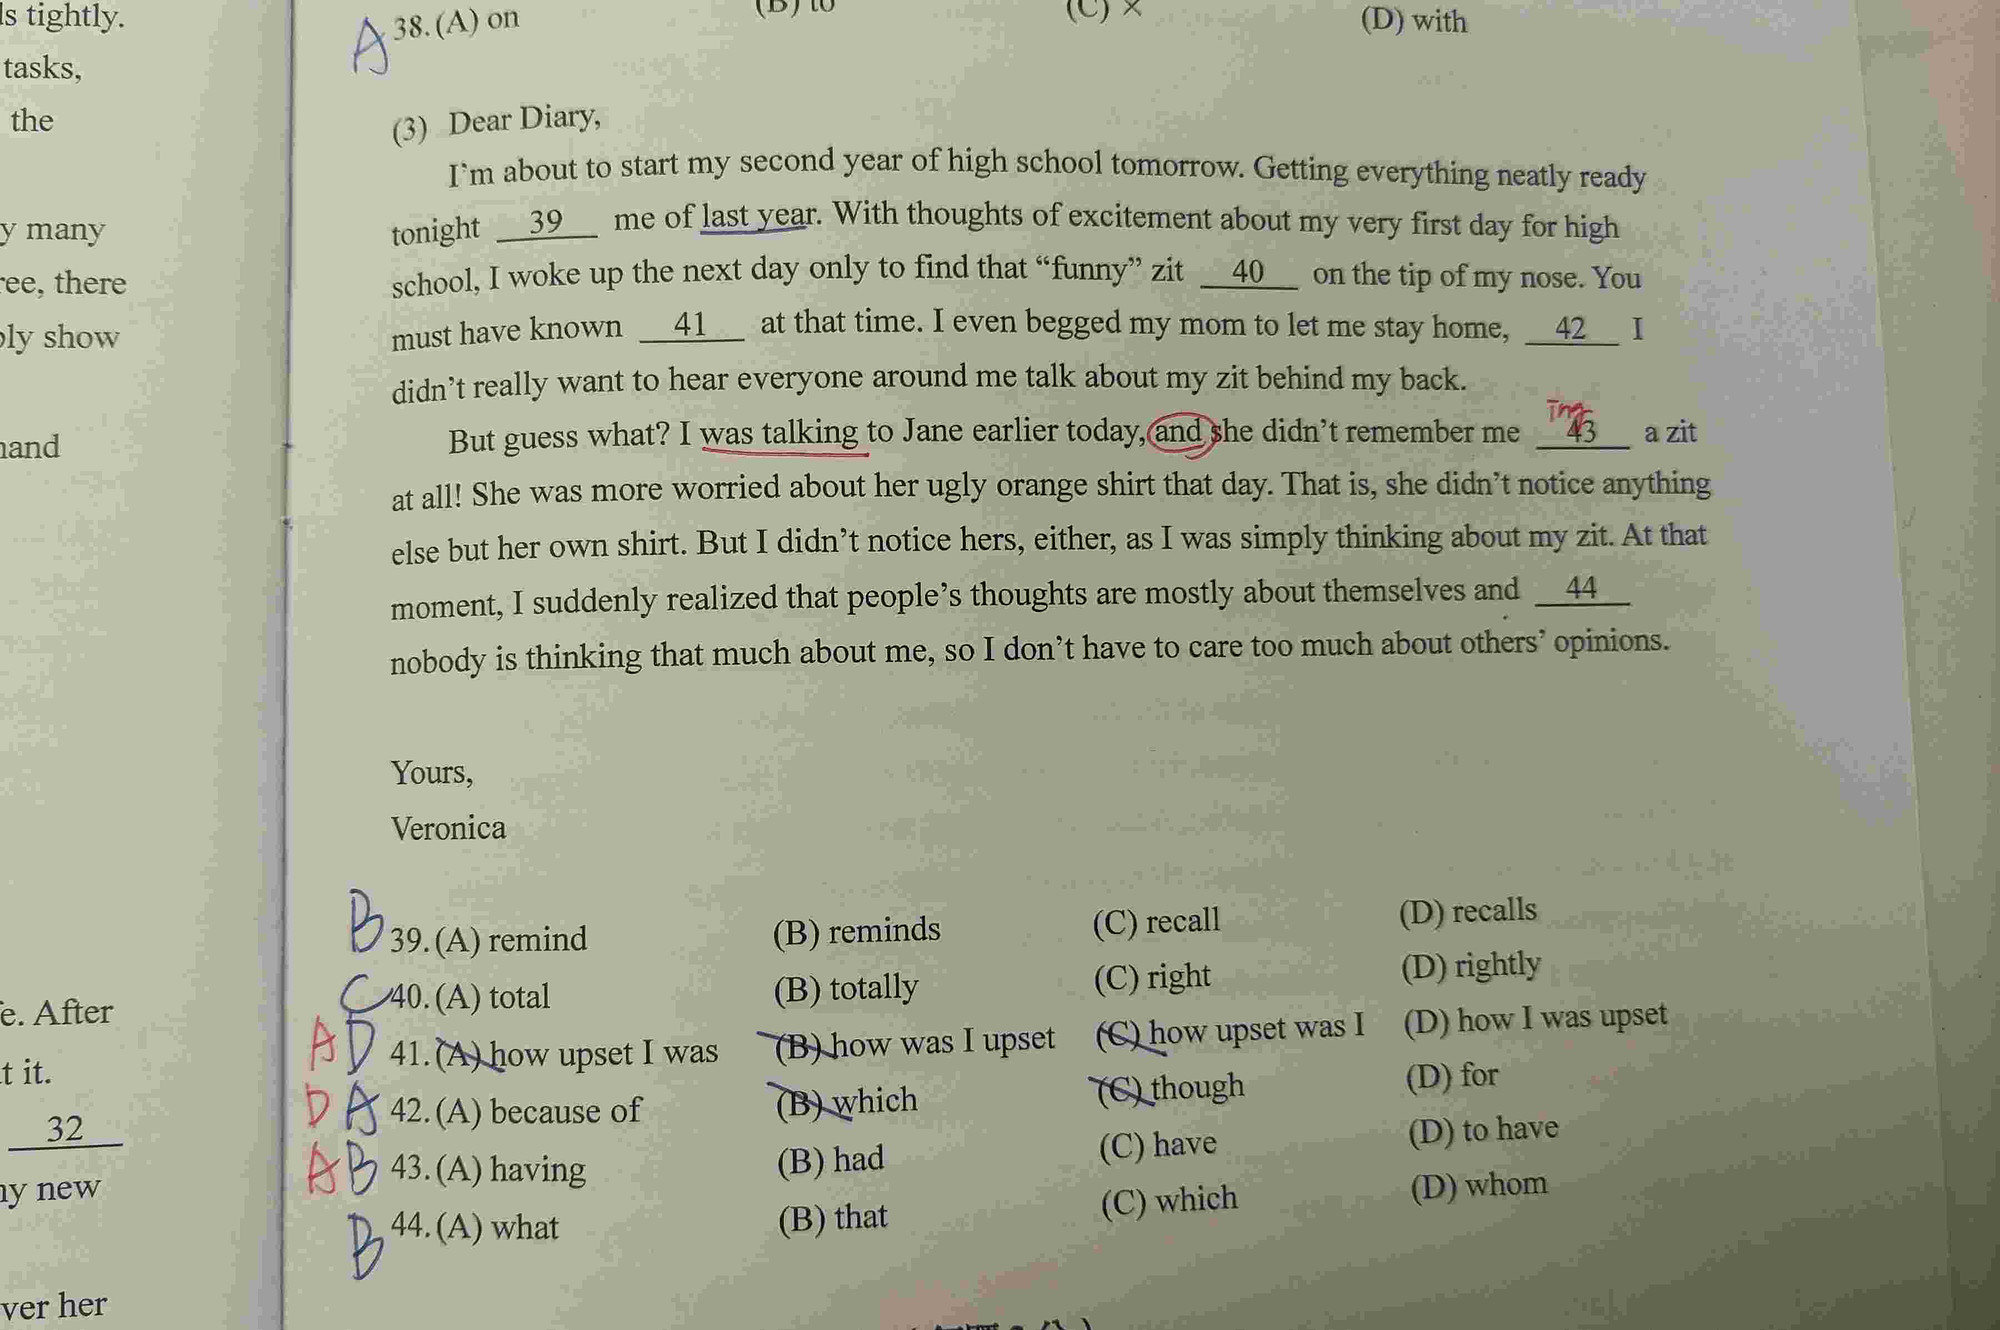 ls tightly.
tasks,
the
y many
ree, there
ply show
hand
e. After
t it.
32
ny new
ver her
A 38. (A) on (B) to (C) × (D) with
(3) Dear Diary,
I'm about to start my second year of high school tomorrow. Getting everything neatly ready
tonight 39 me of last year. With thoughts of excitement about my very first day for high
school, I woke up the next day only to find that “funny” zit 40 on the tip of my nose. You
must have known 41 at that time. I even begged my mom to let me stay home, 42 I
didn't really want to hear everyone around me talk about my zit behind my back.
ing
But guess what? I was talking to Jane earlier today, and she didn't remember me 43 a zit
at all! She was more worried about her ugly orange shirt that day. That is, she didn't notice anything
else but her own shirt. But I didn't notice hers, either, as I was simply thinking about my zit. At that
moment, I suddenly realized that people's thoughts are mostly about themselves and 44
nobody is thinking that much about me, so I don't have to care too much about others' opinions.
Yours,
Veronica
B 39. (A) remind (B) reminds (C) recall (D) recalls
C 40. (A) total (B) totally (C) right (D) rightly
A D 41. (A) how upset I was (B) how was I upset (C) how upset was I (D) how I was upset
D A 42. (A) because of (B) which (C) though (D) for
A B 43. (A) having (B) had (C) have (D) to have
B 44. (A) what (B) that (C) which (D) whom